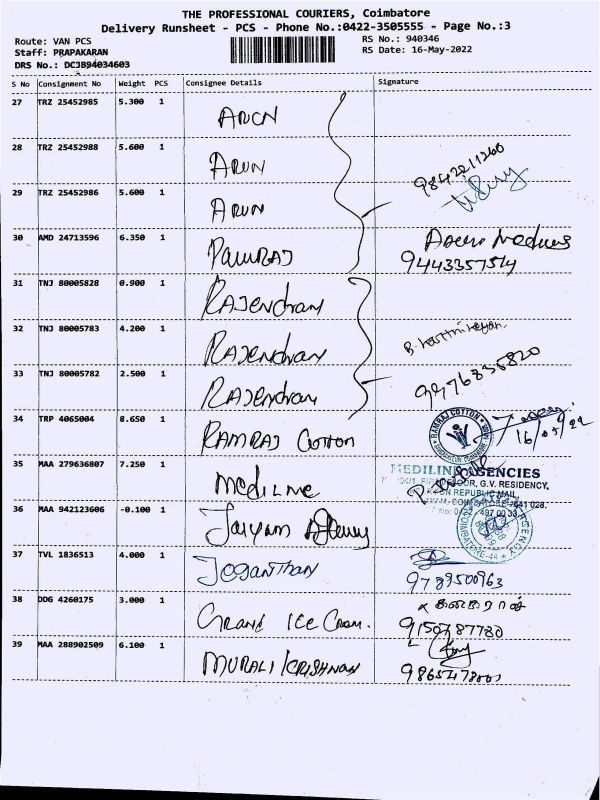 THE PROFESSIONAL COURIERS, Coimbatore
Delivery Runsheet - PCS - Phone No.:0422-3505555 - Page No.:3
Route: VAN PCS
RS No.: 940346
Staff: PRAPAKARAN
RS Date: 16-May-2022
DRS No.: DCJB94034603
S No Consignment No Weight PCS Consignee Details Signature
27 TRZ 25452985 5.300 1 ARUN
28 TRZ 25452988 5.600 1 ARUN
9842211260
29 TRZ 25452986 5.600 1 ARUN
30 AMD 24713596 6.350 1
9443357514
31 TNJ 80005828 0.900 1 RAJENdRAN
32 TNJ 80005783 4.200 1 RAJENdRAN
33 TNJ 80005782 2.500 1 RAJENdRAN
9976835820
34 TRP 4065004 8.650 1 RAMRAJ COTTON
RAMRAJ COTTON
16/05/22
35 MAA 279636807 7.250 1 MEDILINE
MEDILINE AGENCIES
G.V. RESIDENCY,
REPUBLIC MAIL,
641 028.
36 MAA 942123606 -0.100 1
AGENCY
COIMBATORE-44
37 TVL 1836513 4.000 1 JOGANTHAN
9789500963
38 DDG 4260175 3.000 1 GRAND ICE CREAM.
9150787780
39 MAA 288902509 6.100 1 MURALI KRISHNAN